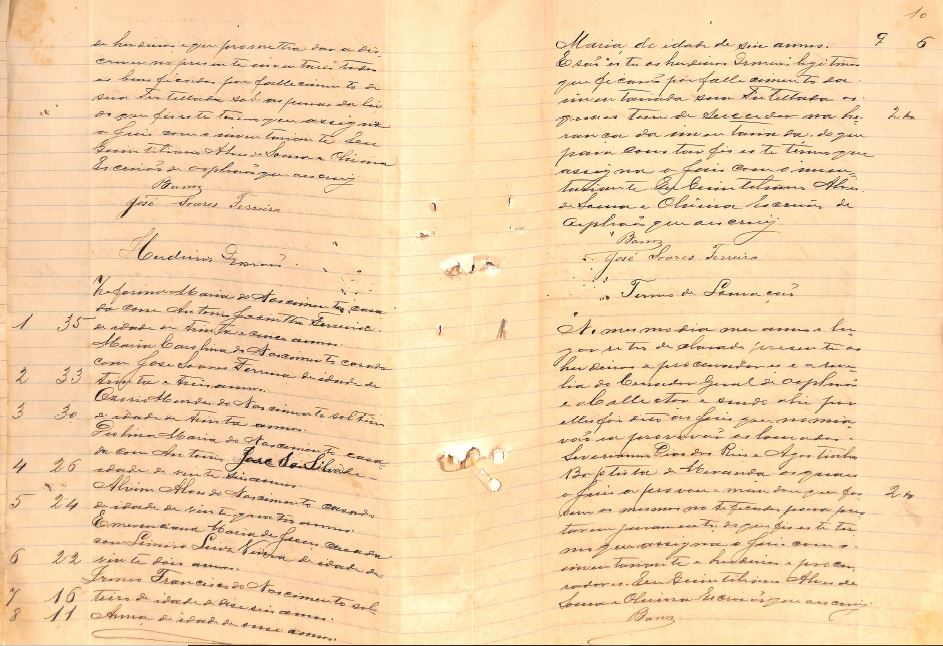 de herdeiros e que prometia dar a des-
crever no presente inventario todos
os bens ficados por fallecimento de
sua Tutellada sob as penas da lei
do que fis este termo que assigna
o Juis com o inventariante. Eu
Quintiliano Alves de Sousa e Oliveira
Escrivão de orphãos que escrevy
José Soares Ferreira
Herdeiros Irmãos
Maria do Nascimento, casa-
da com Antonio Ferreira
1 35 de idade de trinta e cinco annos.
Maria Carolina do Nascimento casada
com Jose Soares Ferreira de idade de
2 33 trinta e treis annos.
Mendes do Nascimento solteiro
3 30 de idade de trinta annos.
Maria do Nascimento casa-
da com Antonio José da Silva
4 26 idade de vinte seis annos.
Alvim Alves do Nascimento casado
5 24 de idade de vinte quatro annos.
Emerenciana Maria de Jesus casada
com Vieira de idade de
6 22 vinte dois annos.
Francisco do Nascimento sol-
7 16 teiro de idade de deseseis annos.
8 11 Anna, de idade de onse annos.
10
Maria de idade de seis annos. 9 6
E são estes os herdeiros Irmãos legitimos
que ficarão por fallecimento da
inventariada sua Tutellada os
quaes tem de succeder na he-
rança da inventariada. do que
para constar fis este termo que
assigna o Juis com o inven-
tariante Eu Quintiliano Alves
de Sousa e Oliveira Escrivão de
orphãos que escrevy
José Soares Ferreira
Termo de Louvação
No mesmo dia mes anno e lu-
gar retro declarado presente os
herdeiros e procuradores e a reve-
lia do Curador Geral de orphãos
e o Collector e sendo ahi por
elles foi dito ao Juis que nomia
vão e aprovavão os louvados
Severiano Dias dos Reis e Agostinho
Baptista de Miranda os quaes
o Juis aprovou e mandou que fos
sem os mesmos notificados para pres
tarem juramento do que fis este ter
mo que assigna o Juis com o
inventariante e herdeiros e procu
radores. Eu Quintiliano Alves de
Sousa e Oliveira Escrivão que escrevy